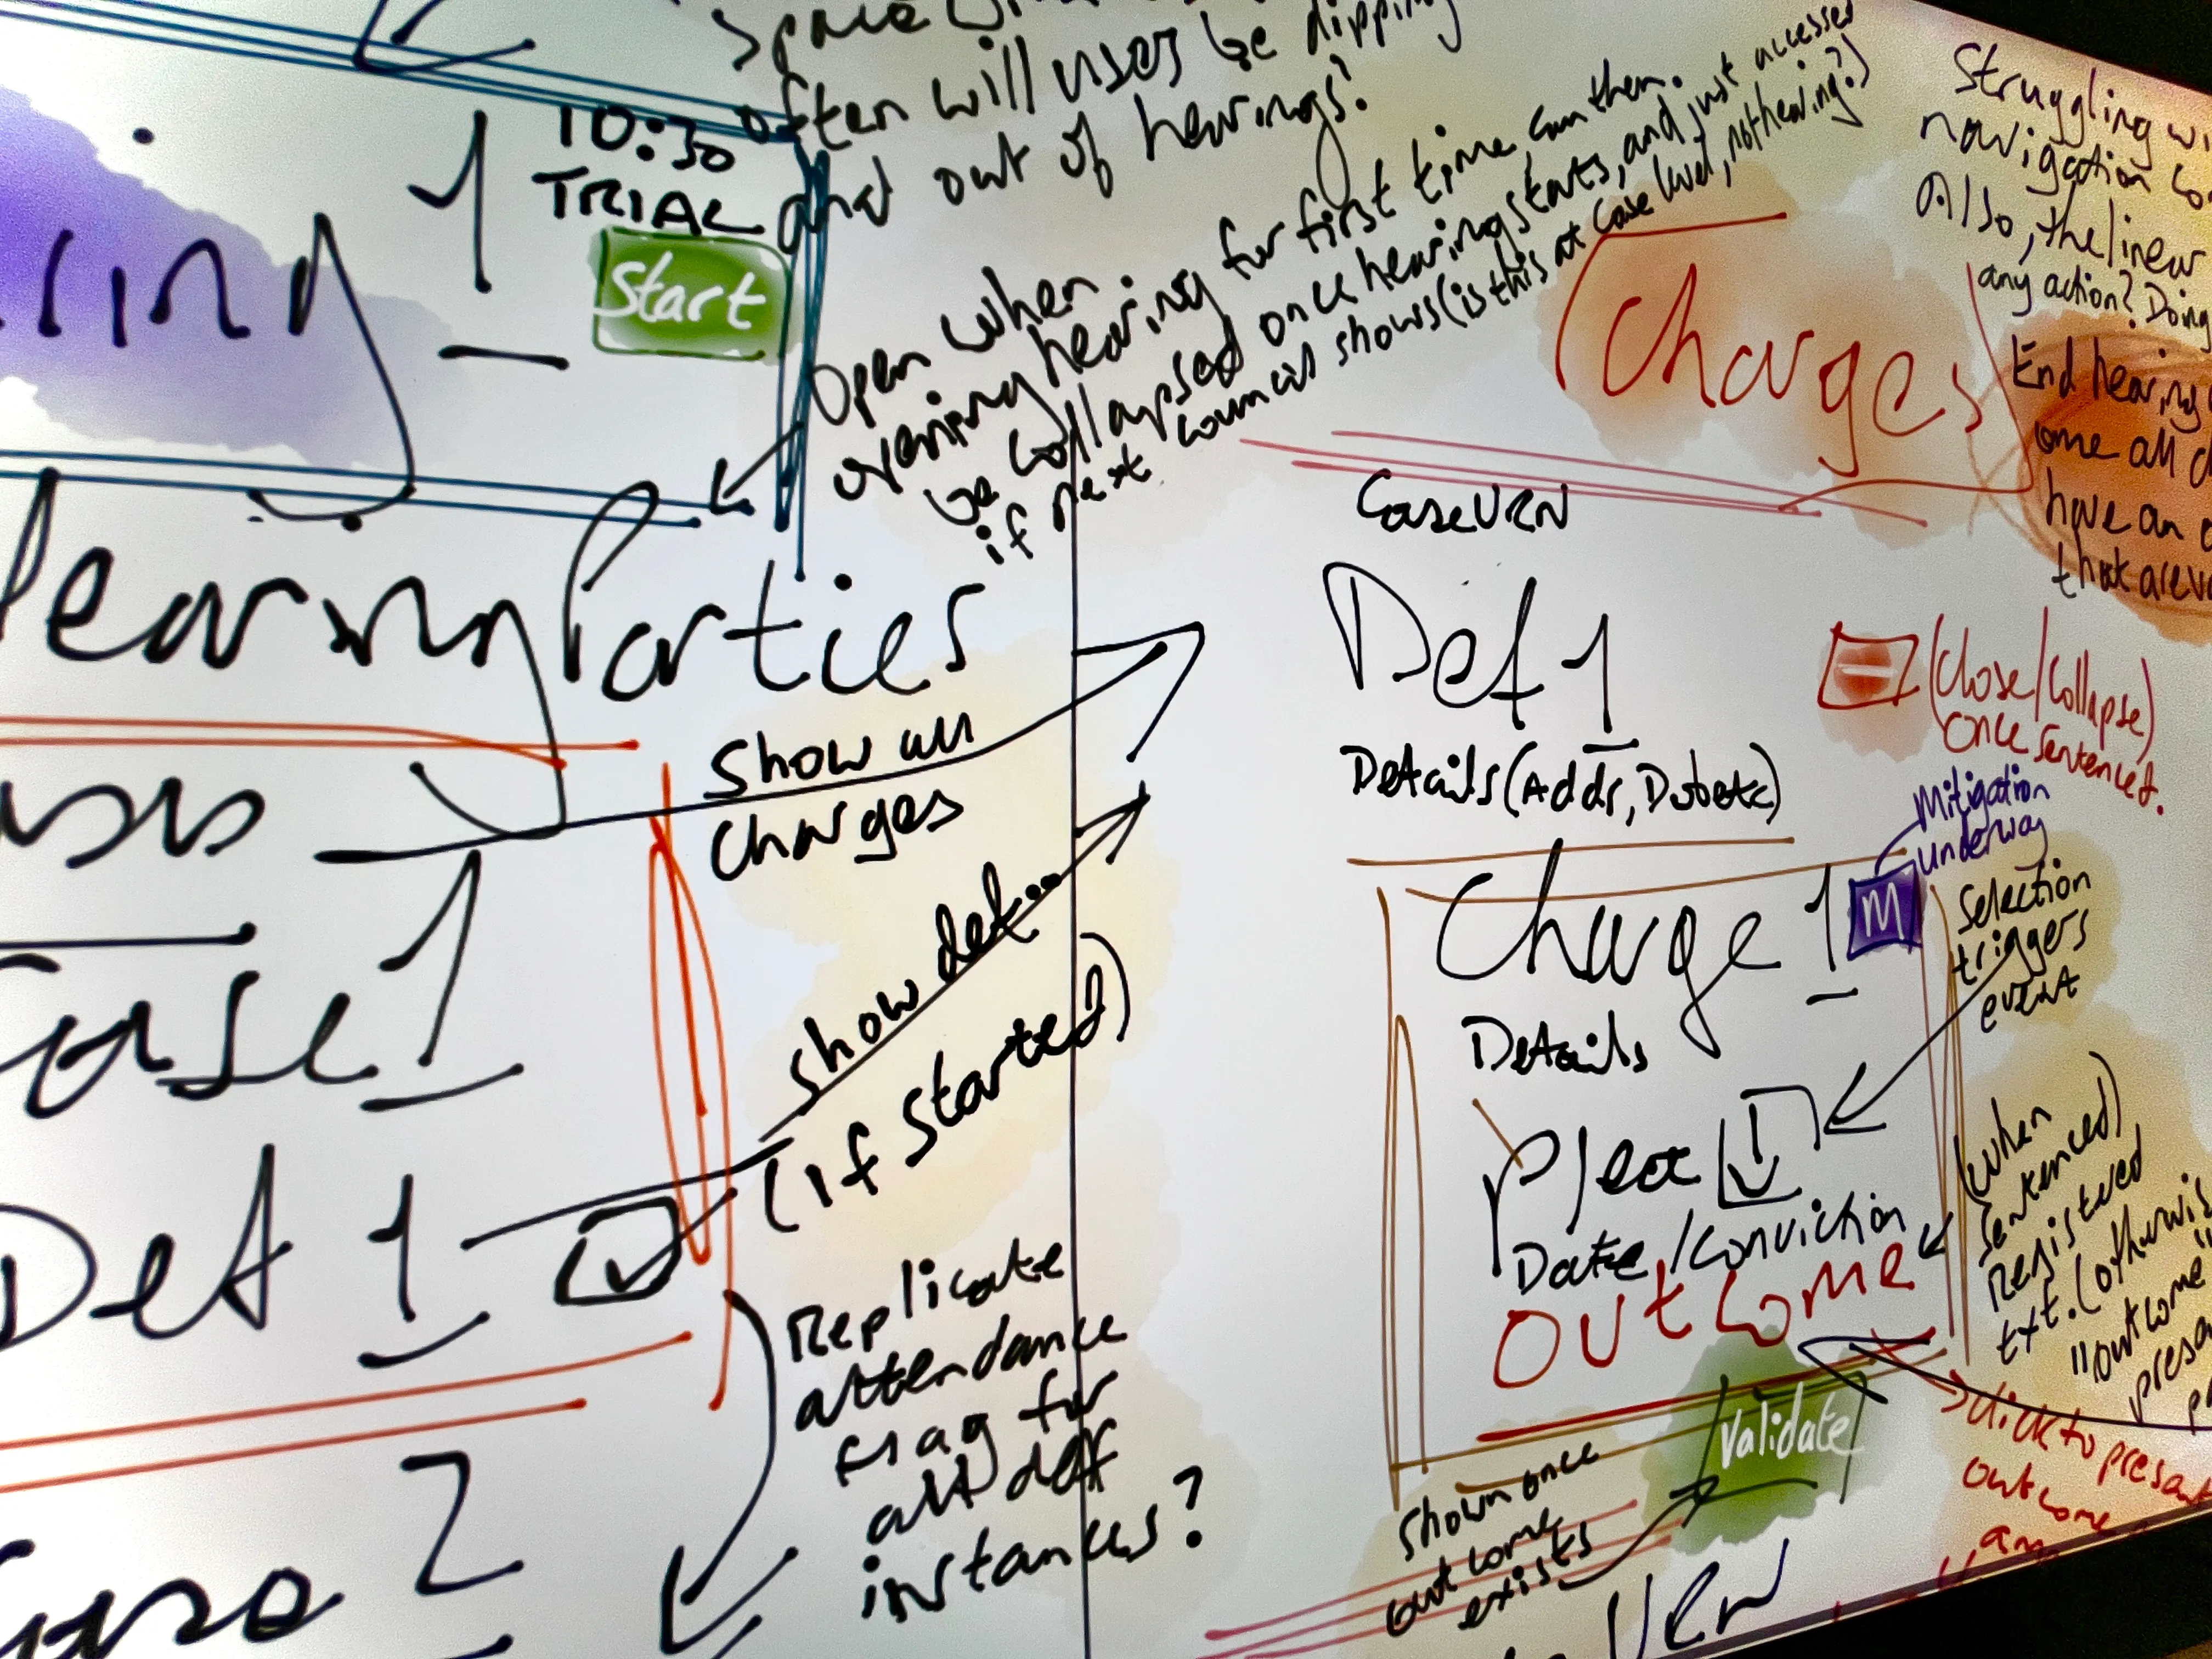 often will users be dipping
and out of hearings?
10:30
TRIAL
1
Start
Open when
opening hearing for first time, can then.
be collapsed once hearing starts, and just accessed
if next council shows (is this at case level, not hearing?)
Parties
Show all
Charges
Case 1
Show def...
(if started)
Def 1
Replicate
attendance
flag for
all def
instances?
2
Charges
Struggling
navigation
Also, the linear
any action? Doing
End hearing
all
have an
that are
Case URN
Def 1
Details (Addr, Dob etc)
(Close/Collapse)
once sentenced.
Mitigation
underway
Charge 1
M
Selection
triggers
event
Details
Plea
Date/Conviction
Outcome
(When
sentenced)
Registered
txt.
"outcome"
Validate
Shown once
outcome
exists
click to present
outcome
URN